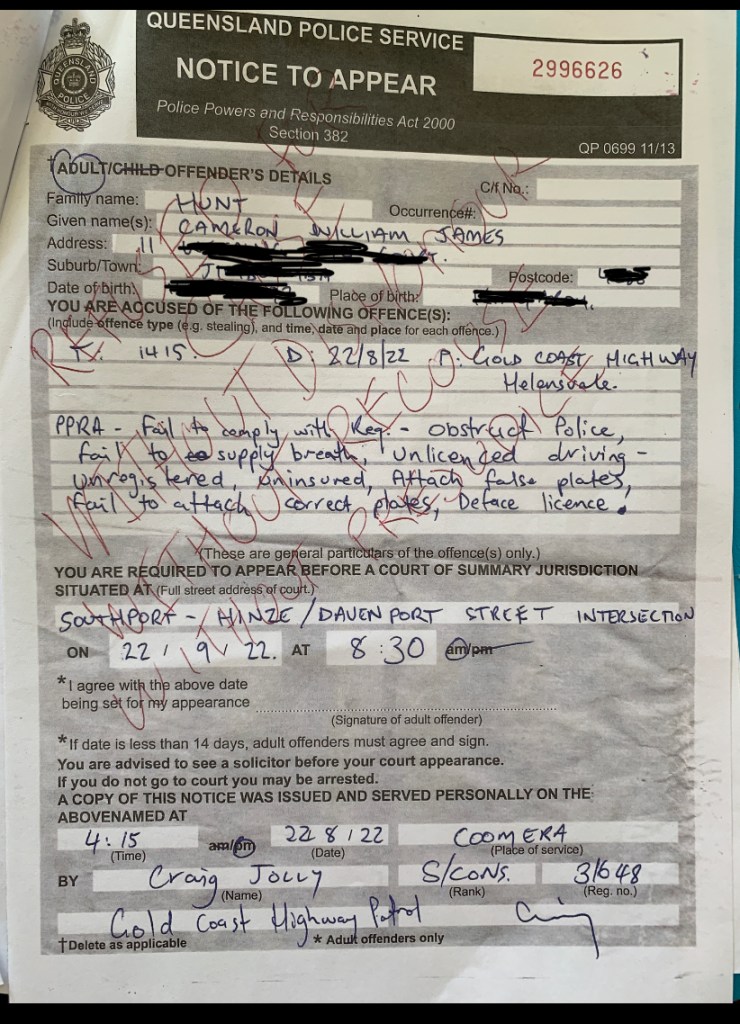 QUEENSLAND POLICE SERVICE
QUEENSLAND POLICE
NOTICE TO APPEAR
2996626
Police Powers and Responsibilities Act 2000
Section 382
QP 0699 11/13
†ADULT/CHILD OFFENDER'S DETAILS
C/f No.:
Family name: HUNT
Occurrence#:
Given name(s): CAMERON WILLIAM JAMES
Address: 11
Suburb/Town:
Postcode:
Date of birth:
Place of birth:
YOU ARE ACCUSED OF THE FOLLOWING OFFENCE(S):
(Include offence type (e.g. stealing), and time, date and place for each offence.)
T: 1415. D: 22/8/22 P: GOLD COAST HIGHWAY
Helensvale.
PPRA - Fail to comply with Req. - Obstruct Police,
fail to supply breath, Unlicenced driving -
unregistered, uninsured, Attach false plates,
fail to attach correct plates, Deface licence.
(These are general particulars of the offence(s) only.)
YOU ARE REQUIRED TO APPEAR BEFORE A COURT OF SUMMARY JURISDICTION
SITUATED AT (Full street address of court.)
SOUTHPORT - HINZE / DAVENPORT STREET INTERSECTION
ON 22 / 9 / 22. AT 8:30 am/pm
*I agree with the above date
being set for my appearance
(Signature of adult offender)
*If date is less than 14 days, adult offenders must agree and sign.
You are advised to see a solicitor before your court appearance.
If you do not go to court you may be arrested.
A COPY OF THIS NOTICE WAS ISSUED AND SERVED PERSONALLY ON THE
ABOVENAMED AT
4:15 am/pm 22 8 / 22 COOMERA
(Time) (Date) (Place of service)
BY Craig JOLLY S/CONS. 31648
(Name) (Rank) (Reg. no.)
Gold Coast Highway Patrol
†Delete as applicable * Adult offenders only
WITHOUT
WITHOUT RECOURSE
WITHOUT PREJUDICE